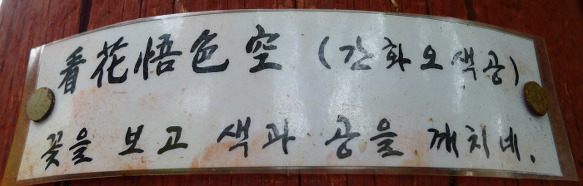 看花悟色空 (간화오색공)
꽃을 보고 색과 공을 깨치네.